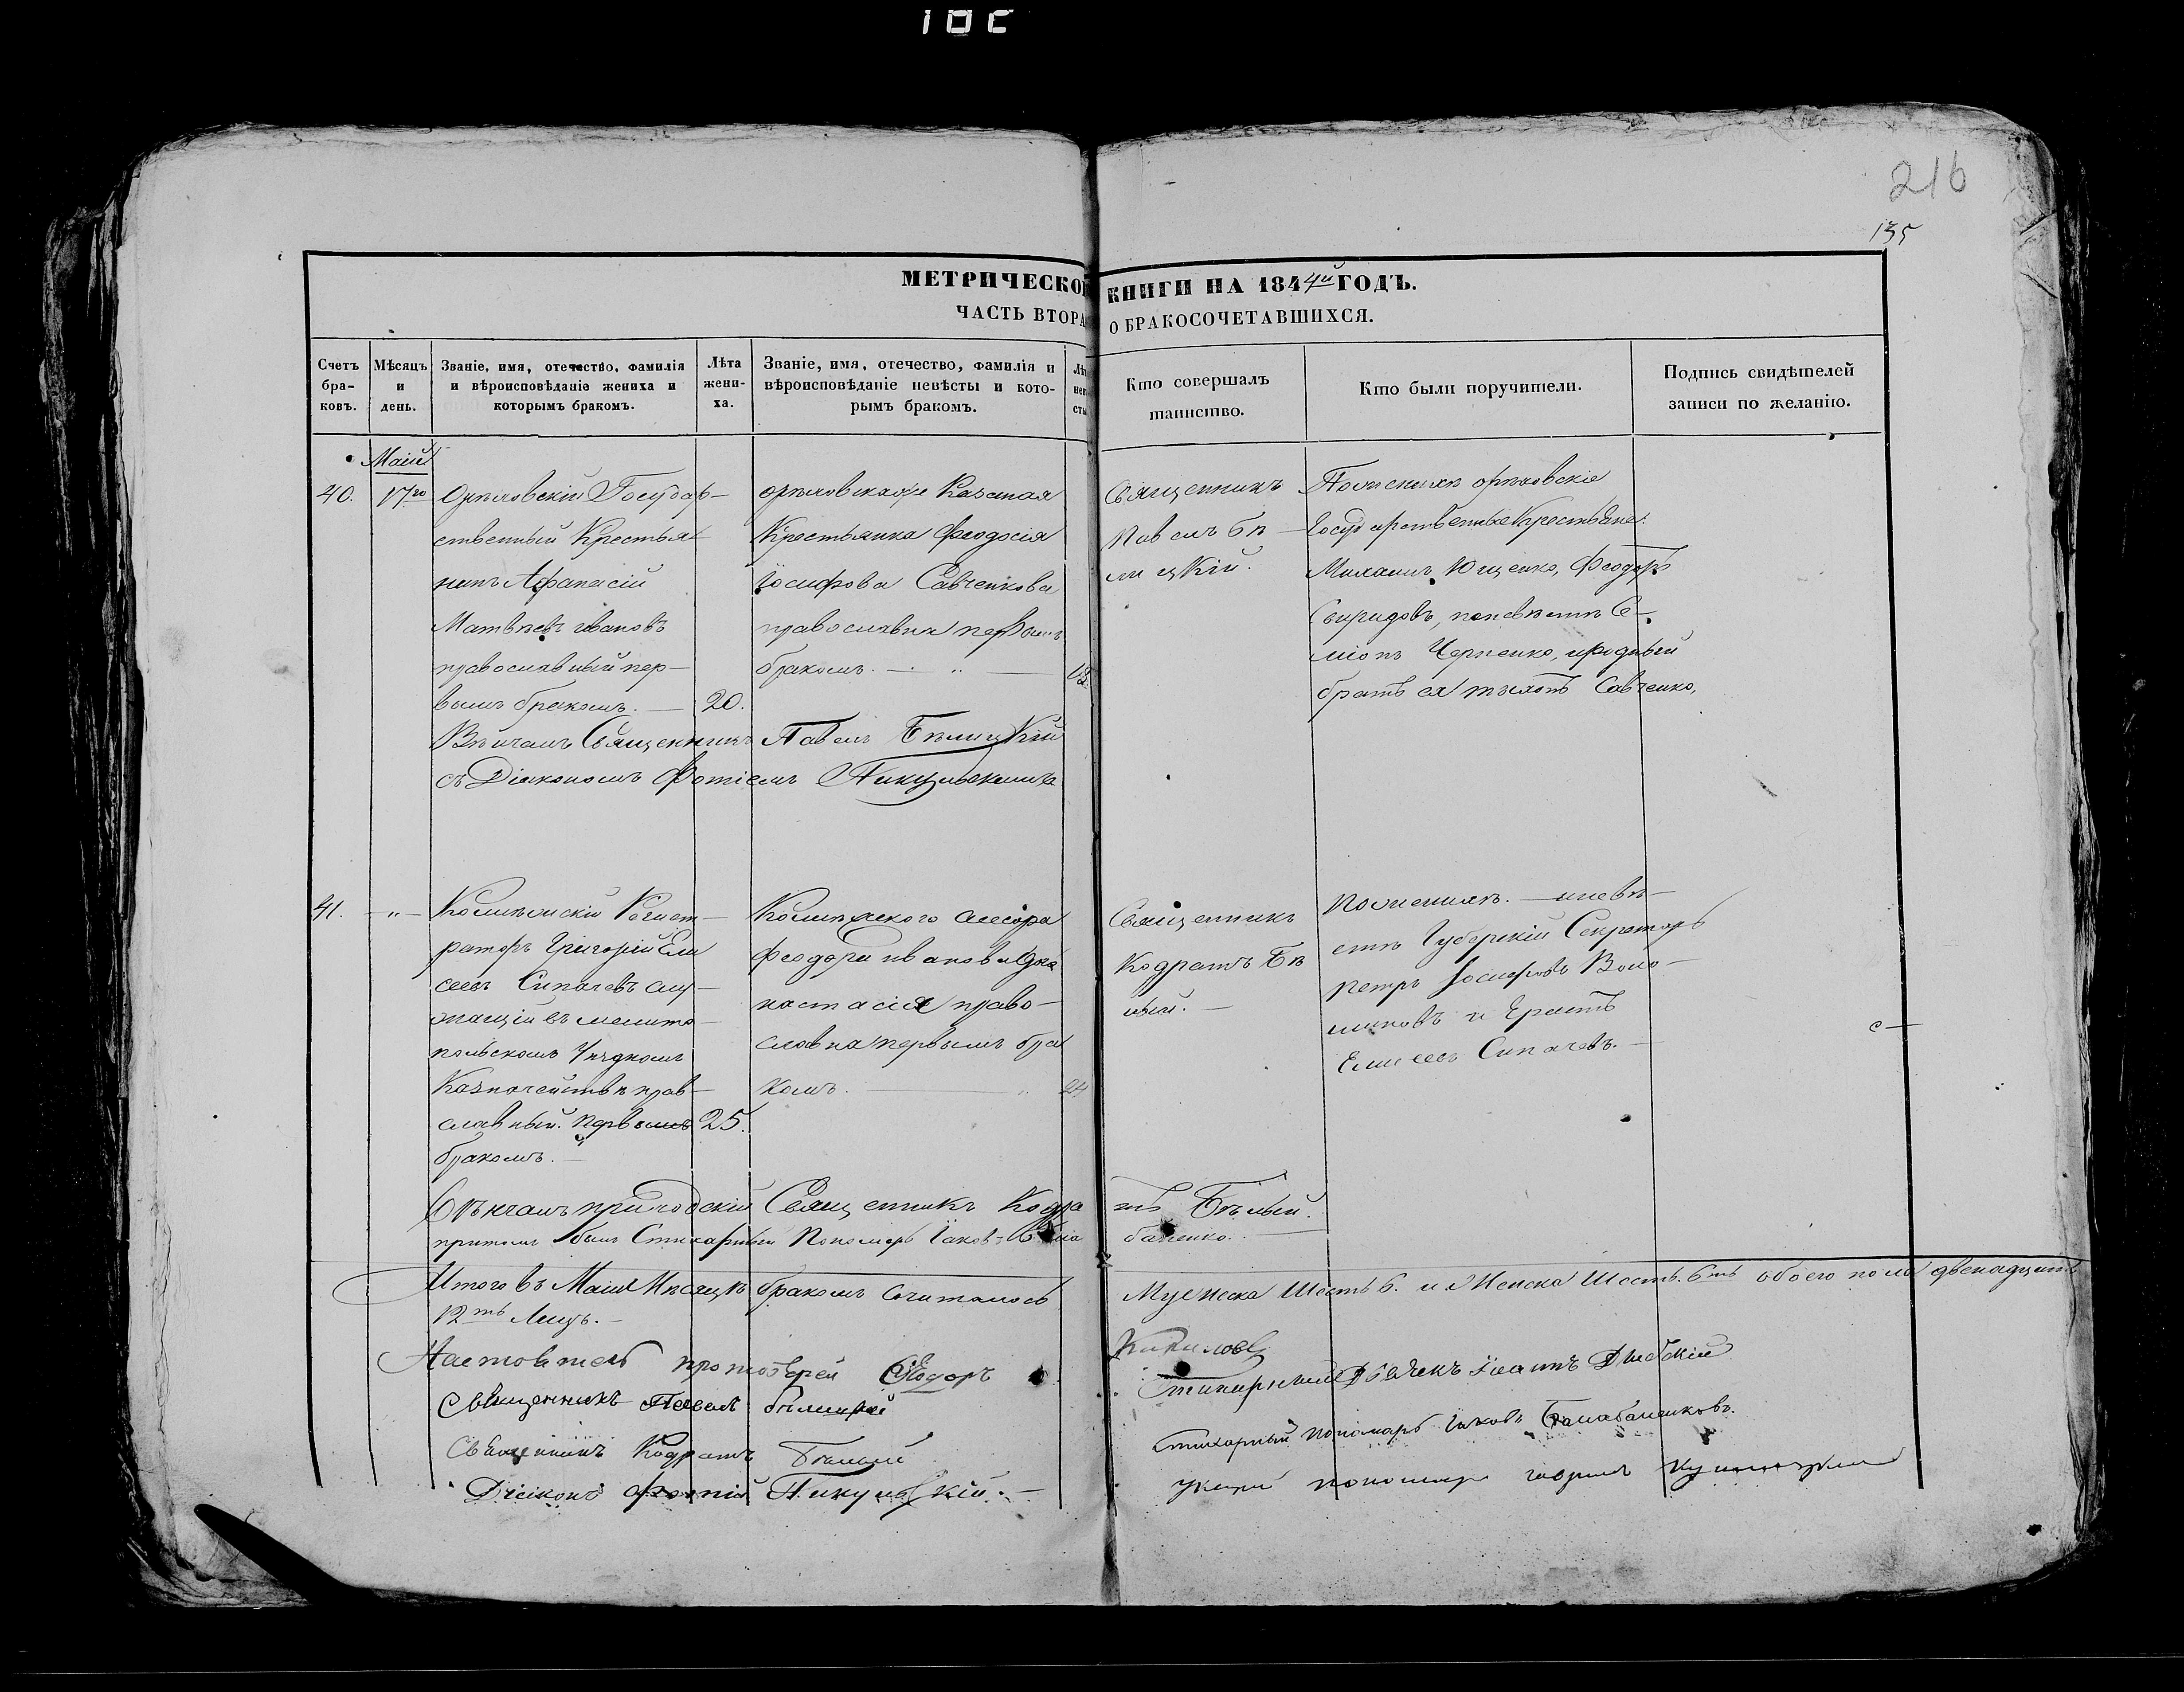 216
135
МЕТРИЧЕСКОЙ КНИГИ НА 1844й ГОДЪ.
ЧАСТЬ ВТОРА О БРАКОСОЧЕТАВШИХСЯ.
Счетъ браковъ.
Мѣсяцъ и день.
Званіе, имя, отечество, фамилія и вѣроисповѣданіе жениха и которымъ бракомъ.
Лѣта жениха.
Званіе, имя, отечество, фамилія и вѣроисповѣданіе невѣсты и которымъ бракомъ.
Кто совершалъ таинство.
Кто были поручители.
Подпись свидѣтелей записи по желанію.
Маій
40.
17го
Орѣховскій Государ-
ственный Крестья
нинъ Афанасій
Матвѣевъ Ивановъ
православный пер-
вымъ бракомъ. 20.
орѣховская Казеная
Крестьянка Феодосія
Іосифова Савченкова
православна первымъ
бракомъ. 18
Священникъ
Павелъ Бѣ-
лицкій.
По женихѣ орѣховскіе
Государственные Крестьяне:
Михаилъ Ющенко, Феодоръ
Свиридовъ, по невѣстѣ Се-
міонъ Черненко, и родный
братъ ея Савченко,
Вѣнчалъ Священникъ Павелъ Бѣлицкій
съ Діакономъ Фотіемъ Пикульскимъ
41.
Колѣжскій Регист-
раторъ Григорій Ели
сеевъ Сипачевъ слу-
жащій въ мелито-
польскомъ Уѣздномъ
Казначействѣ прав-
славный. первымъ 25.
бракомъ.
Колѣжского асесора
Феодора иванова дочь
настасія право-
славна первымъ бра
комъ. 24
Священникъ
Кодратъ Бѣ
лый.
По женихѣ. и невѣ-
стѣ Губерскій Секретарь
Петръ Іосифовъ
и Ерастъ
Елисеевъ Сипачевъ.
Вѣнчалъ приходскій Священникъ Кодра тъ Бѣлый.
притомъ былъ Стихарный Пономарь Іаковъ
Итого въ Маій Мѣсяцѣ бракомъ Считалось Мужеска Шесть 6. и Женска Шесть. 6ть обоего пола двенадцать
12ть Лицъ.
Настоятель протоіерей Феодоръ Кириловъ
Священникъ Павелъ Бѣлицкій
Священникъ Кодратъ Бѣлый
Діаконъ Фотій Пикульскій.
Стихарный Дьячекъ Іоаннъ
Стихарный пономарь Іаковъ
пономарь Гавріилъ